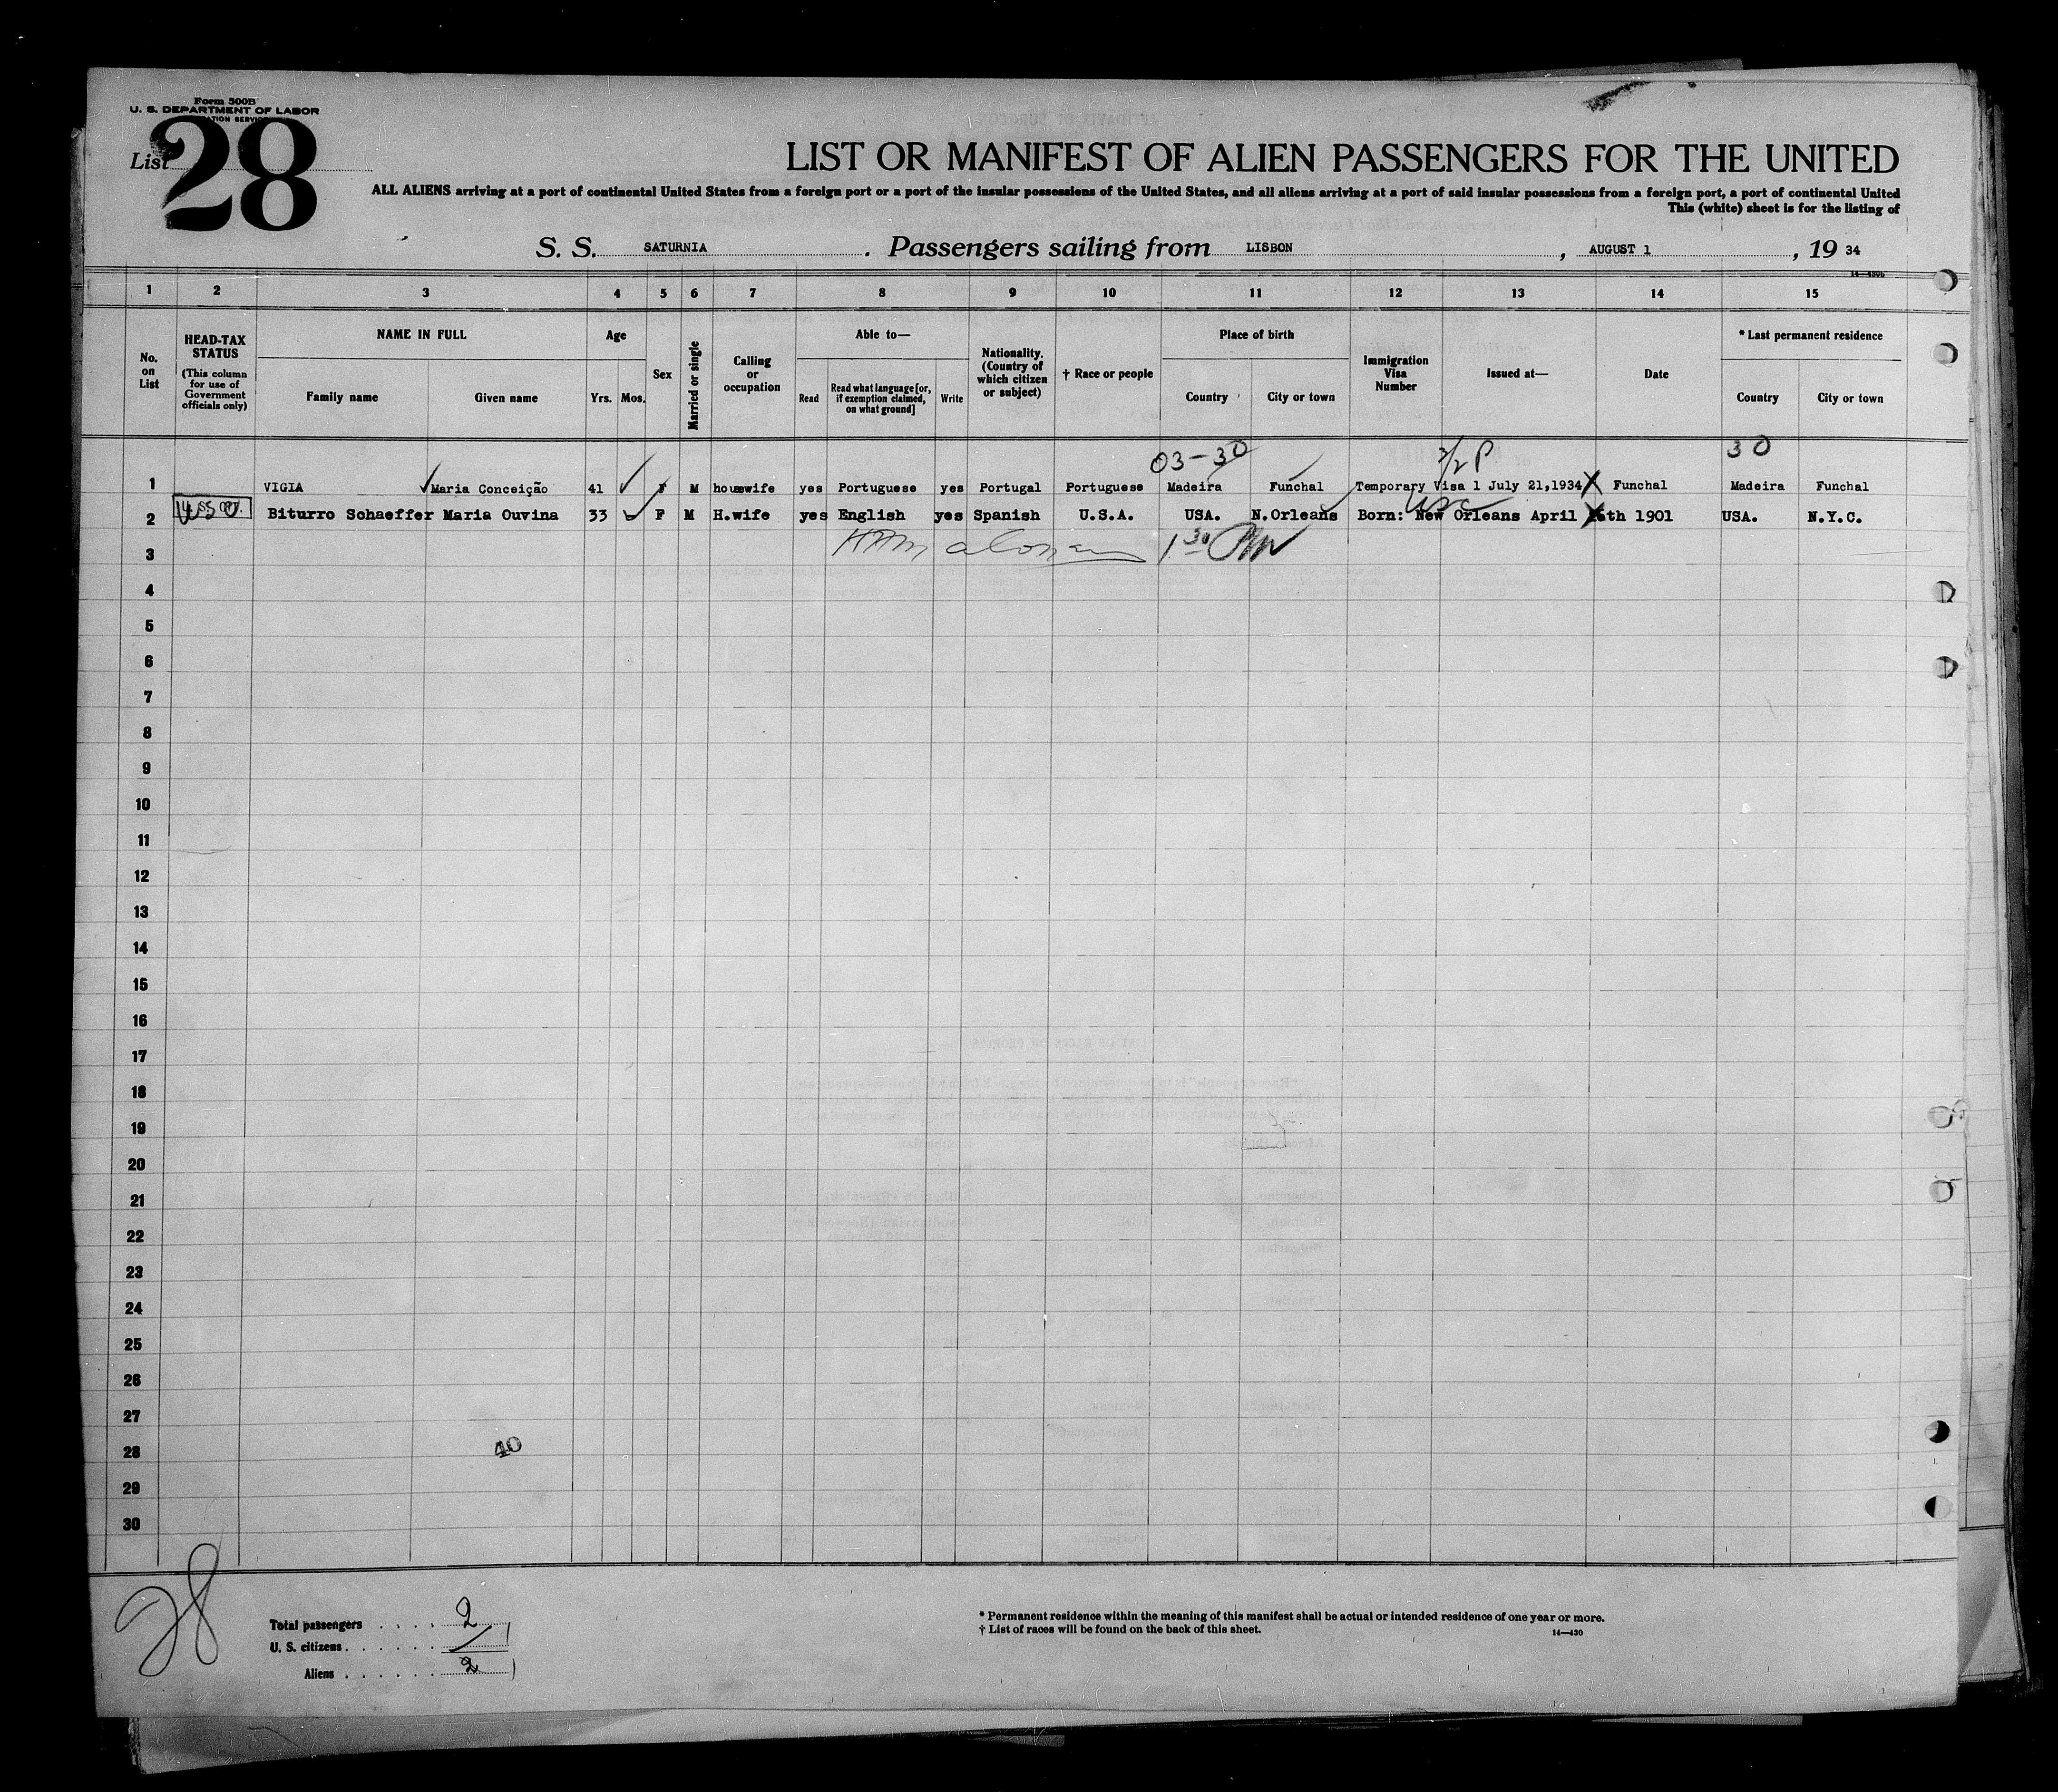 Form 500B
U. S. DEPARTMENT OF LABOR
List 28
LIST OR MANIFEST OF ALIEN PASSENGERS FOR THE UNITED
ALL ALIENS arriving at a port of continental United States from a foreign port or a port of the insular possessions of the United States, and all aliens arriving at a port of said insular possessions from a foreign port, a port of continental United
This (white) sheet is for the listing of
S. S. SATURNIA. Passengers sailing from LISBON, AUGUST 1, 19 34
1 2 3 4 5 6 7 8 9 10 11 12 13 14 15
No. on List
HEAD-TAX STATUS
(This column for use of Government officials only)
NAME IN FULL
Family name Given name
Age
Yrs. Mos.
Sex
Married or single
Calling or occupation
Able to—
Read
Read what language [or, if exemption claimed, on what ground]
Write
Nationality. (Country of which citizen or subject)
† Race or people
Place of birth
Country City or town
Immigration Visa Number
Issued at—
Date
* Last permanent residence
Country City or town
03-30 30
1 VIGIA Maria Conceição 41 F M housewife yes Portuguese yes Portugal Portuguese Madeira Funchal Temporary Visa 1 July 21,1934 X Funchal Madeira Funchal
2 Biturro Schaeffer Maria Ouvina 33 F M H.wife yes English yes Spanish U.S.A. USA. N.Orleans Born: New Orleans April 1901 USA. N.Y.C.
USC
3
4
5
6
7
8
9
10
11
12
13
14
15
16
17
18
19
20
21
22
23
24
25
26
27
28
29
30
40
28
Total passengers . . . . 2
U. S. citizens . . . . . . 1
Aliens . . . . . . 1
* Permanent residence within the meaning of this manifest shall be actual or intended residence of one year or more.
† List of races will be found on the back of this sheet.
14—430